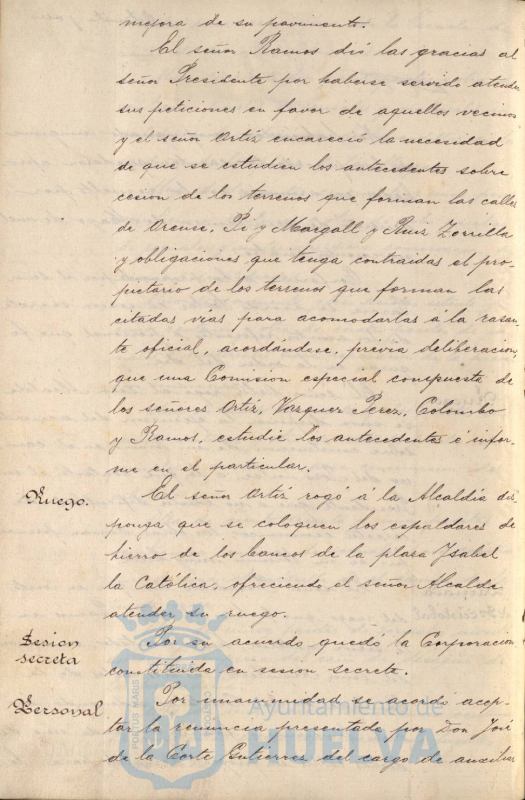 mejora de su pavimento.
El señor Ramos dió las gracias al
señor Presidente por haberse servido atender
sus peticiones en favor de aquellos vecinos
y el señor Ortiz encareció la necesidad
de que se estudien los antecedentes sobre
cesion de los terrenos que forman las calles
de Orense, Pi y Margall y Ruiz Zorrilla
y obligaciones que tenga contraidas el pro-
pietario de los terrenos que forman las
citadas vias para acomodarlas á la rasan-
te oficial, acordándose, previa deliberacion,
que una Comision especial compuesta de
los señores Ortiz, Vazquez Perez, Colombo
y Ramos, estudie los antecedentes é infor-
me en el particular.
Ruego.
El señor Ortiz rogó á la Alcaldia dis-
ponga que se coloquen los espaldares de
hierro de los bancos de la plaza Ysabel
la Católica, ofreciendo el señor Alcalde
atender su ruego.
Sesion
secreta
Por su acuerdo quedó la Corporacion
constituida en sesion secreta.
Personal
Por unanimidad se acordó acep-
tar la renuncia presentada por Don José
de la Corte Gutierrez del cargo de auxiliar
Ayuntamiento de
HUELVA
PORTUS MARIS